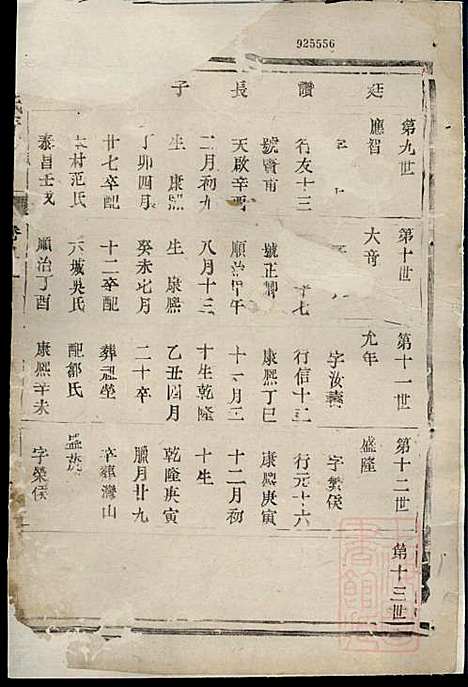 925556
廷讚長子
第九世
第十世
第十一世
第十二世
第十三世
應智
行友十三
號賓甫
天啟辛酉
二月初九
生康熙
丁卯四月
廿七卒配
村范氏
泰昌壬戌
大奇
十七
號正卿
順治甲午
八月十三
生康熙
癸未七月
十二卒配
城吳氏
順治丁酉
允年
字汝
行信十三
康熙丁巳
十一月三
十生乾隆
乙丑四月
二十卒
葬
配鄒氏
康熙辛未
盛隆
字繁侯
行元十六
康熙庚寅
十二月初
十生
乾隆庚寅
臘月廿九
卒葬灣山
盛
字榮侯